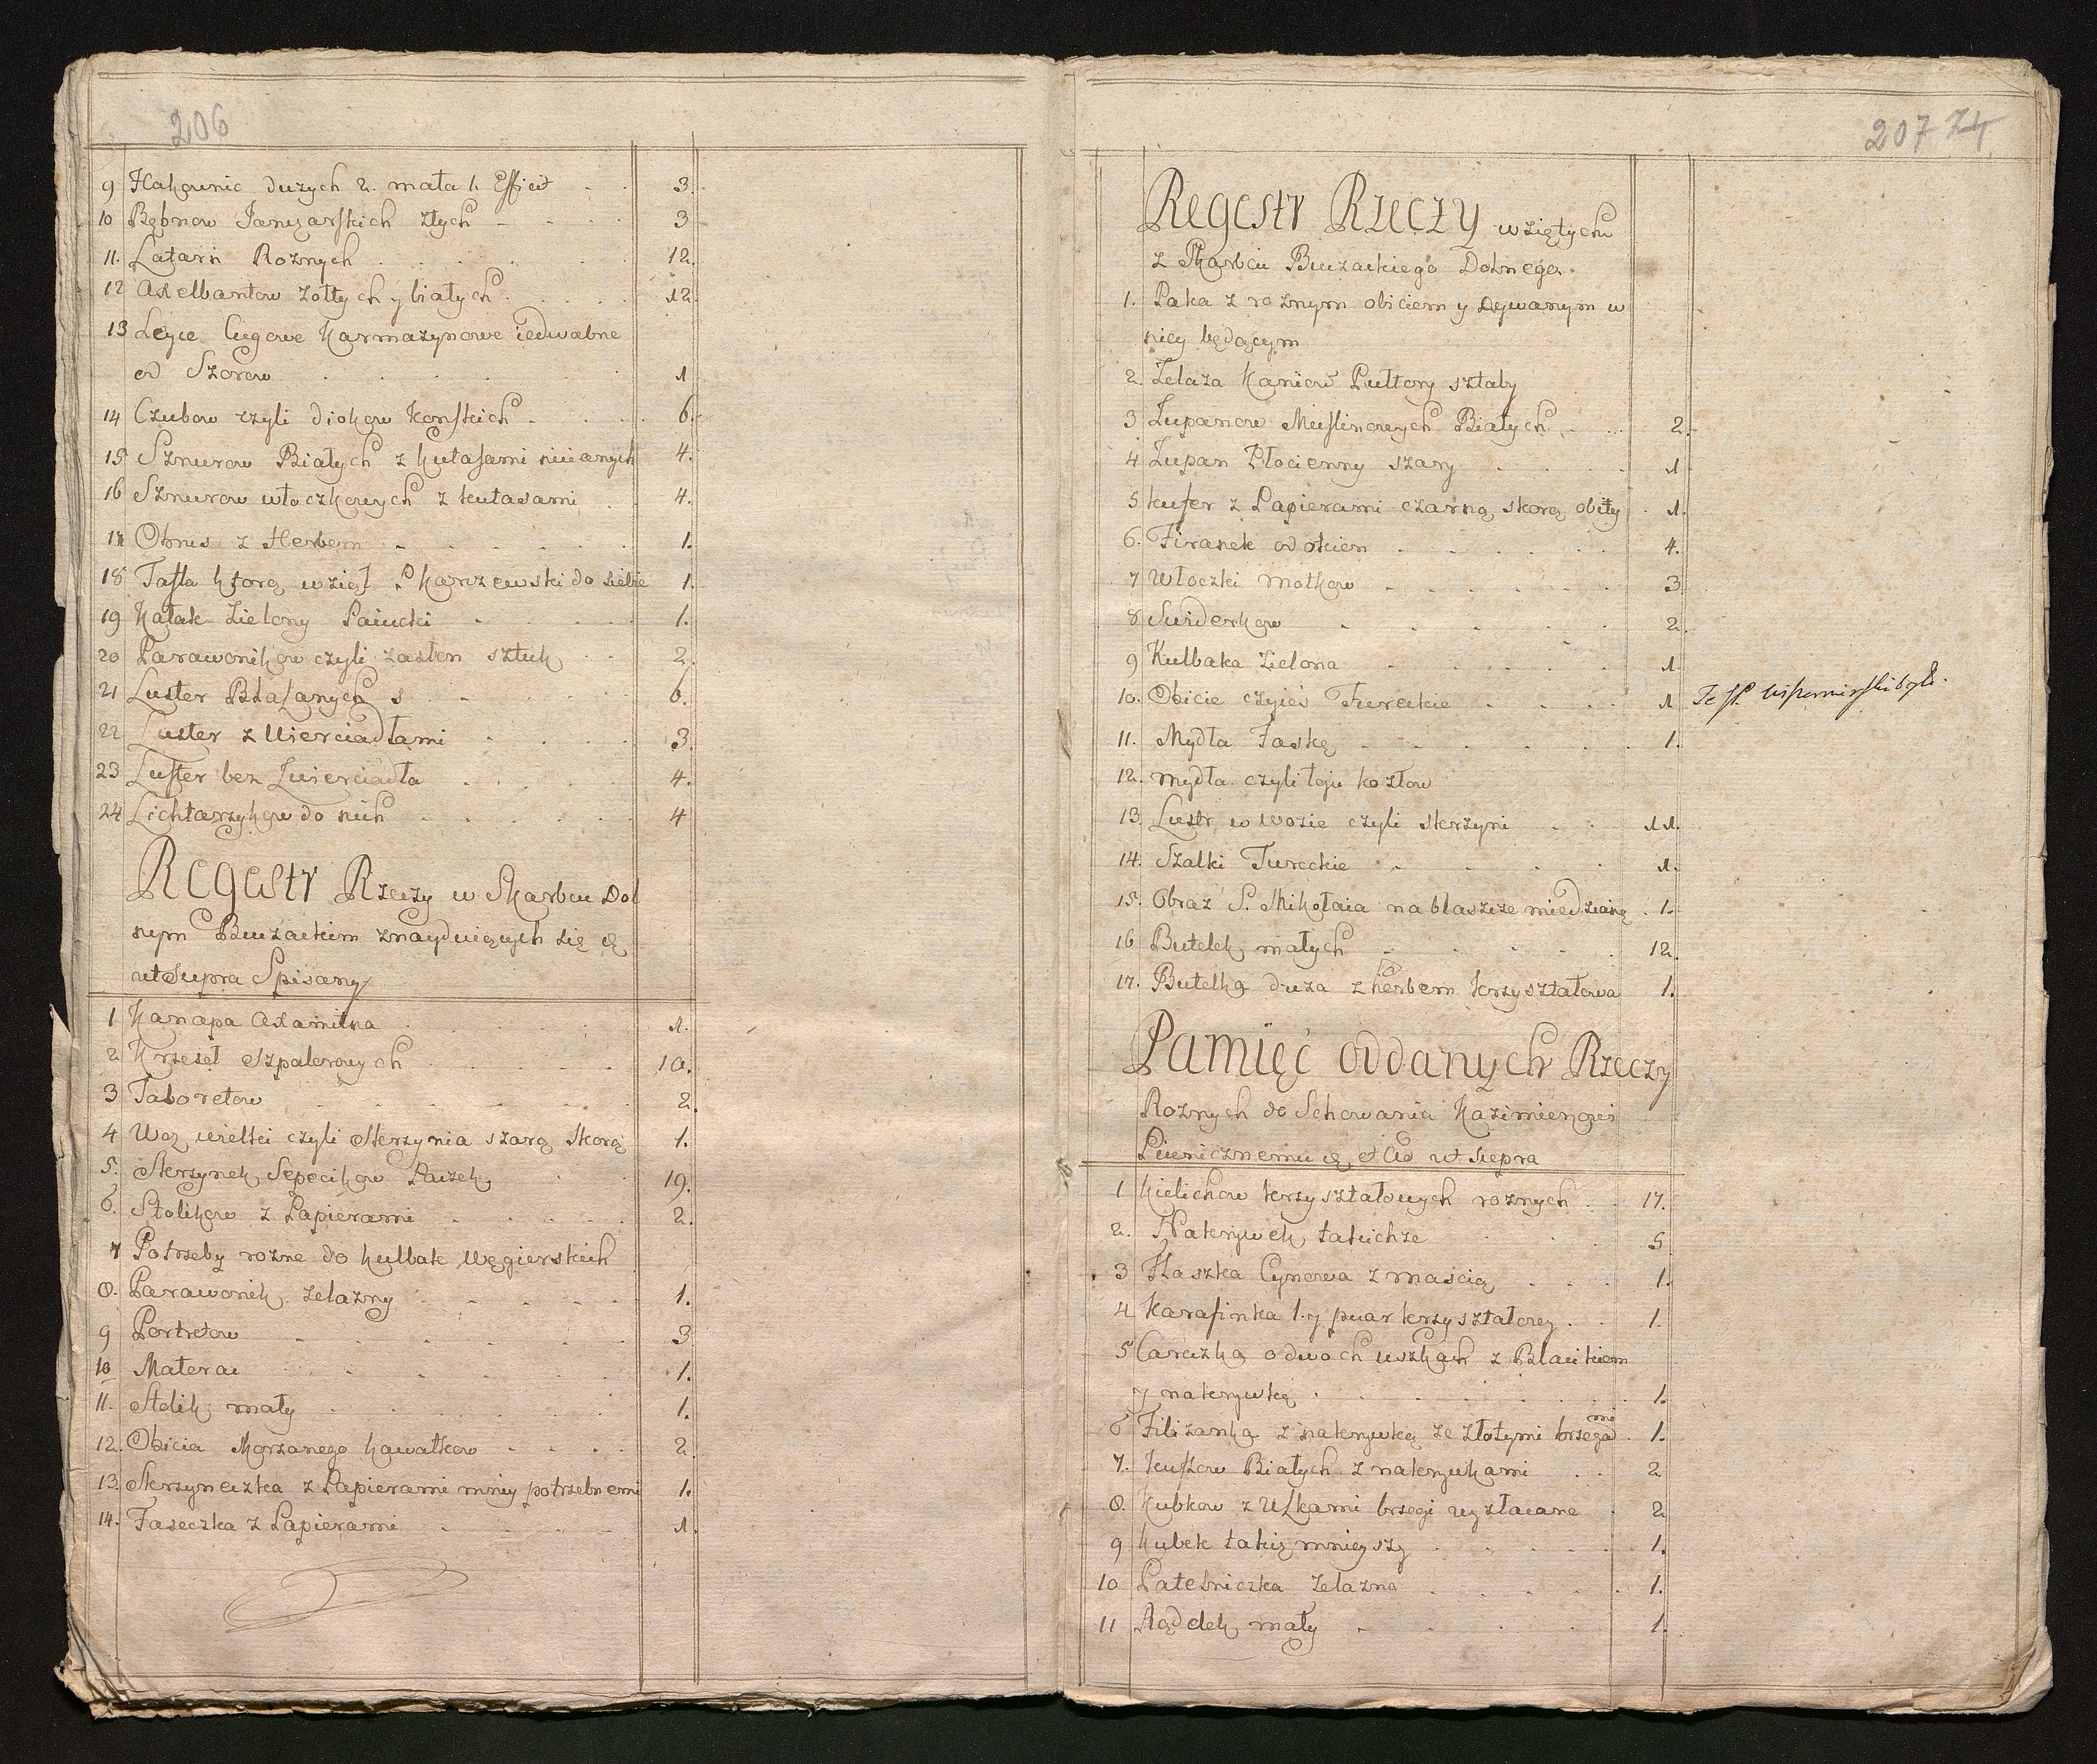 206
9 Hakownic duzych 2. mała 1. Efficit 3.
10 Bębnow Janczarskich złych 3
11. Latarń Roznych 12.
12 Axelbantow zołtych y białych 12.
13 Leyce Cugowe Karmazynowe iedwabne
od Szorow 1
14 Czubow czyli diokow konskich 6.
15 Sznurow Białych z kutasami nicianych 4.
16 Sznurow włoczkowych z kutasami 4.
17 Obrus z Herbem 1.
18 Tassa ktorą wzięł P Karczewski do siebie 1.
19 Kałak Zielony Paiucki 1.
20 Parawonikow czyli zasłon sztuk 2.
21 Luster Blaszanych s 6.
22 Luster z Zwierciadłami 3.
23 Luster bez Zwierciadła 4.
24 Lichtarzykow do nich 4
Regestr Rzeczy w Skarbcu Dol
nym Buczackim znayduiących się
ut Supra Spisany
1 Kanapa Axamitna 1.
2 Krzeseł Szpalerowych 10.
3 Taboretow 2.
4 Woz wielki czyli Skrzynia szarą skorą 1.
5. Skrzynek, Sepecikow Paczek 19.
6. Stolikow z Papierami 2.
7 Potrzeby rozne do Kulbak Węgierskich
8. Parawonik zelazny 1.
9 Portretow 3
10 Materac 1.
11. Stolik mały 1.
12. Obicia Morzanego kawałkow 2
13. Skrzyneczka z Papierami mniey potrzebnemi 1.
14. Faseczka z Papierami 1.
207 74
Regestr Rzeczy wziętych
z Skarbcu Buczackiego Dolnego
1. Paka z roznym obiciem y Dywanym w
niey będącym
2. Zelaza Kaniow Pułtory sztaby
3 Zupanow Muslinowych Białych 2.
4 Zupan Płocienny szary 1
5 Kufer z Papierami czarną skorą obity 1.
6. Firanek od okien 4.
7 Włoczki motkow 3
8 Swiderkow 2.
9 Kulbaka Zielona 1
10. Obicie czyieś Tureckie 1
11. Mydła Faskę 1.
12. mydła czyli łoju kozłow
13. Lustr w wozie czyli skrzyni 11.
14. Szalki Tureckie 1.
15. Obraz S. Mikołaia na blaszcze miedzianą 1.
16 Butelek małych 12.
17. Butelka duza z herbem krzyształowa 1.
Pamięć oddanych Rzeczy
Roznych do Schowania Kazimierzowi
Piwnicznemu et ut supra
1 Kielichow krzyształowych roznych 17.
2. Nakrywek takichze 5
3 Flaszka Cynowa z maścią 1.
4 Karafinka 1. y puar krzyształowy 1.
5 Carczka o dwoch uszkach z Blacikiem
y nakrywką 1.
6 Filizanka z nakrywką ze złotymi brzegami 1.
7. Kuflow Białych z nakrywkami 2
8. Kubkow z Uszkami brzegi wyzłacane 2
9 Kubek takiz mnieyszy 1.
10 Patelniczka zelazna 1.
11 Rądelek mały 1.